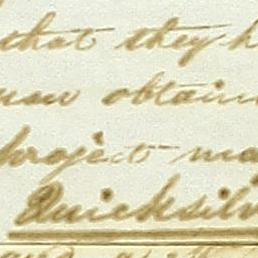 that they h
now obtain
project ma
Quicksilv